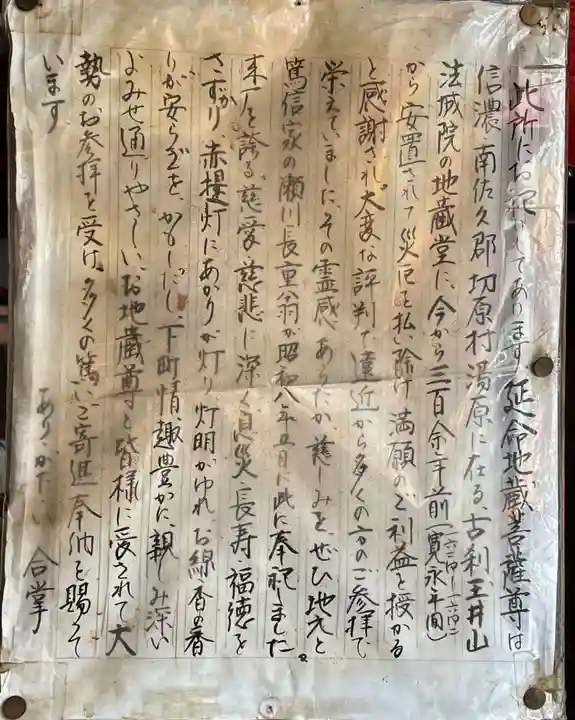 此所にお祀りしてあります延命地蔵菩薩尊は
信濃、南佐久郡切原村湯原に在る、古刹王井山
法城院の地蔵堂に、今から三百余年前(寛永年間)
一六二四―一六四二
から安置されて災厄を払い除け満願のご利益を授かる
と感謝され大変な評判で遠近から多くの方のご参拝で
栄えていました、その霊感あらたか、慈しみを、ぜひ地元と
篤信家の瀬川長重翁が昭和八年五月に此に奉祀しました。
来、を誇る、慈愛、慈悲に深く息災、長寿、福徳を
さずかり、赤提灯にあかりが灯り、灯明がゆれ、お線香の香
りが安らぎを、かもしだし、下町情趣豊かに、親しみ深い
よみせ通りやさしい、お地蔵尊と皆様に愛されて大
勢のお参拝を受け、多くの篤いご寄進、奉納を賜って
います
ありがたい 合掌